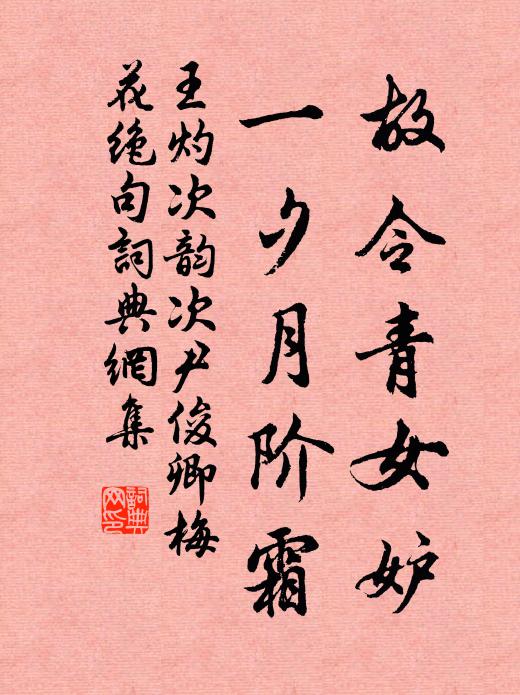 故令青女妒
一夕月阶霜
王灼次韵次尹俊卿梅
花绝句詞典網集
詞典
网印